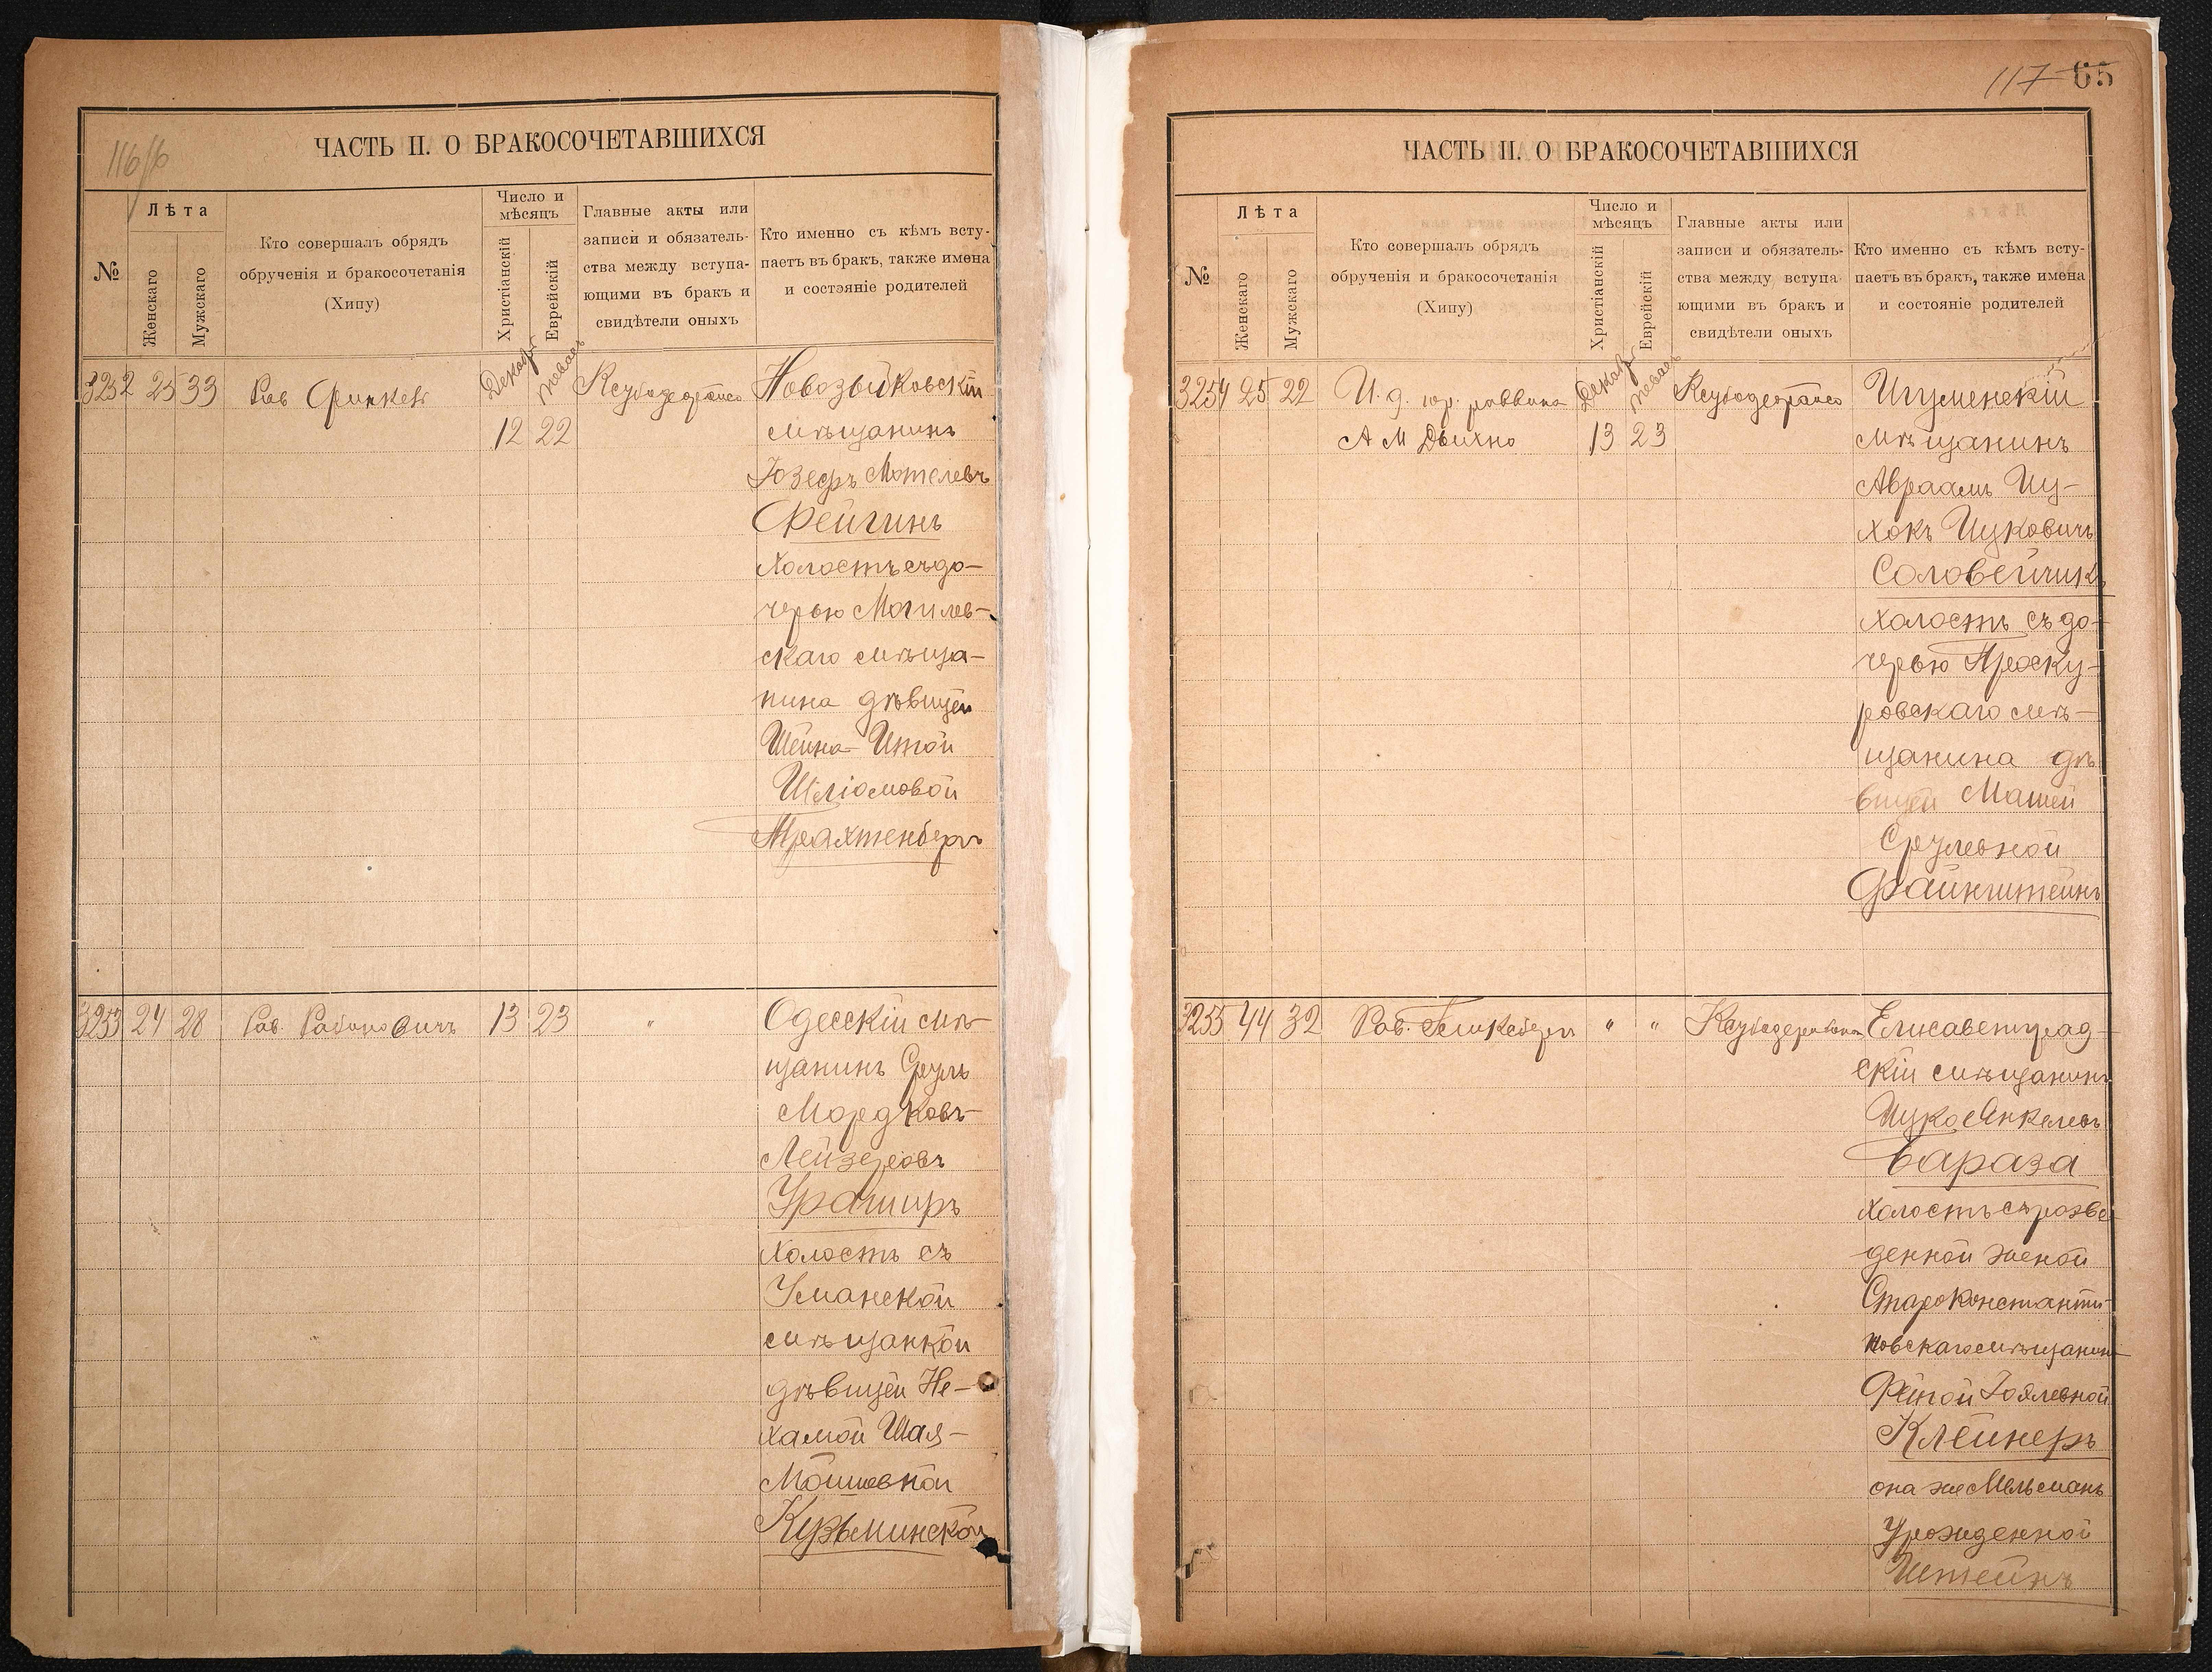 116/б
ЧАСТЬ II. О БРАКОСОЧЕТАВШИХСЯ
№
Лѣта
Женскаго
Мужскаго
Кто совершалъ обрядъ
обрученія и бракосочетанія
(Хипу)
Число и
мѣсяцъ
Христіанскій
Еврейскій
Главные акты или
записи и обязатель-
ства между вступа-
ющими въ бракъ и
свидѣтели оныхъ
Кто именно съ кѣмъ всту-
паетъ въ бракъ, также имена
и состояніе родителей
3252 25 33 Рав Финкель
12 22
Новозыбковскій
мѣщанинъ
Іозефъ Мотелевъ
Фейгинъ
холостъ съ до-
черью Могилев-
скаго мѣща-
нина дѣвицей
Шейна-Итой
Шліомовой
Трахтенбергъ
3253 24 28 Рав. Рабиновичъ 13 23 "
Одесскій мѣ-
щанинъ Сруль
Мордковъ-
Лейзеровъ
Ураширъ
холостъ съ
Уманской
мѣщанкой
дѣвицей Не-
хамой Шая-
Мошковной
Кузьминской
117 65
ЧАСТЬ II. О БРАКОСОЧЕТАВШИХСЯ
№
Лѣта
Женскаго
Мужскаго
Кто совершалъ обрядъ
обрученія и бракосочетанія
(Хипу)
Число и
мѣсяцъ
Христіанскій
Еврейскій
Главные акты или
записи и обязатель-
ства между вступа-
ющими въ бракъ и
свидѣтели оныхъ
Кто именно съ кѣмъ всту-
паетъ въ бракъ, также имена
и состояніе родителей
3254 25 22 И. д. гор. раввина
А М Дыхно
13 23
Игуменскій
мѣщанинъ
Авраамъ Иц-
хокъ Ицковичъ
Соловейчикъ
холостъ съ до-
черью Проску-
ровскаго мѣ-
щанина дѣ
вицей Машей
Срулевной
Файнштейнъ
3255 44 32 Рав. " "
Елисаветград-
скій мѣщанинъ
Ицко Янкелевъ
Бараза
холостъ съ разве-
денной женой
Староконстанти-
новскаго мѣщанина
Фейгой Іоялевной
Клейнеръ
она же Мельманъ
Урожденной
Штейнъ